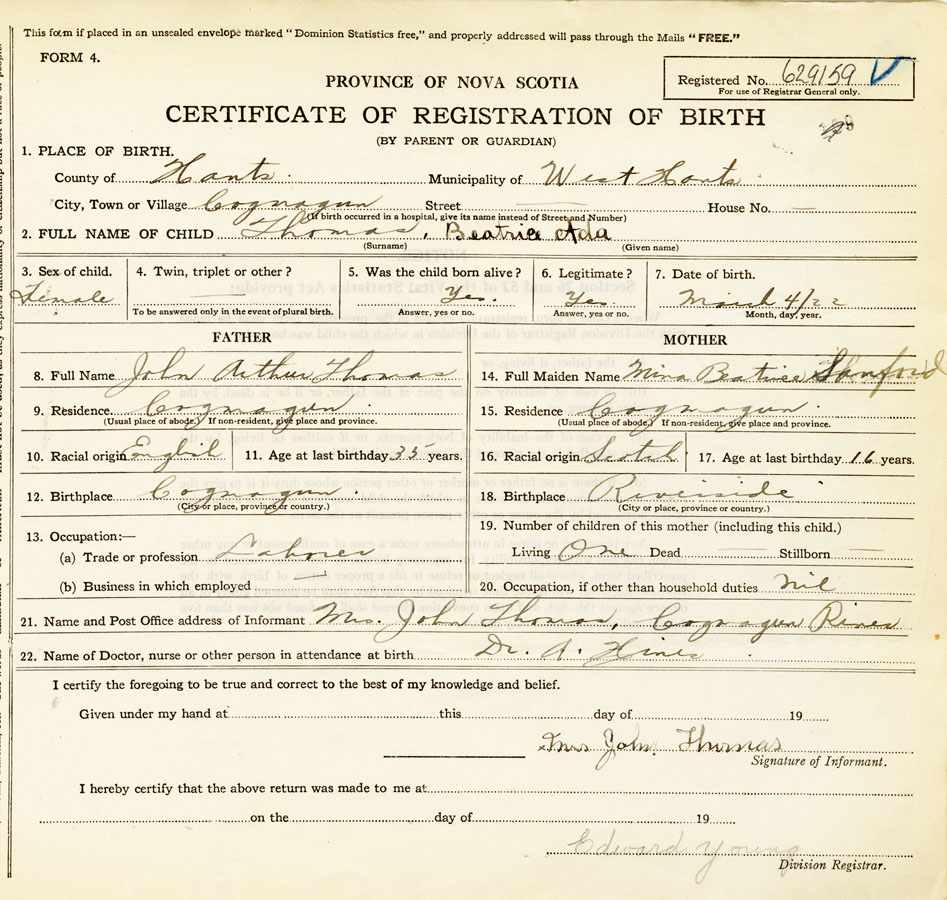 This form if placed in an unsealed envelope marked "Dominion Statistics free," and properly addressed will pass through the Mails "FREE."
FORM 4.
Registered No. 629159
For use of Registrar General only.
PROVINCE OF NOVA SCOTIA
CERTIFICATE OF REGISTRATION OF BIRTH
(BY PARENT OR GUARDIAN)
1. PLACE OF BIRTH.
County of Hants Municipality of West Hants
City, Town or Village Cogmagun Street — House No. —
(If birth occurred in a hospital, give its name instead of Street and Number)
2. FULL NAME OF CHILD Thomas, Beatrice Ada
(Surname) (Given name)
3. Sex of child. 4. Twin, triplet or other? 5. Was the child born alive? 6. Legitimate? 7. Date of birth.
Female — Yes. Yes March 4/22
To be answered only in the event of plural birth. Answer, yes or no. Answer, yes or no. Month, day, year.
FATHER MOTHER
8. Full Name John Arthur Thomas 14. Full Maiden Name Mina Beatrice Sanford
9. Residence. Cogmagun 15. Residence Cogmagun
(Usual place of abode.) If non-resident, give place and province. (Usual place of abode.) If non-resident, give place and province.
10. Racial origin English 11. Age at last birthday 35 years. 16. Racial origin Scotch 17. Age at last birthday 16 years.
12. Birthplace Cogmagun 18. Birthplace Riverside
(City or place, province or country.) (City or place, province or country.)
13. Occupation:— 19. Number of children of this mother (including this child.)
(a) Trade or profession Laborer Living One Dead — Stillborn —
(b) Business in which employed — 20. Occupation, if other than household duties nil
21. Name and Post Office address of Informant Mrs. John Thomas, Cogmagun River
22. Name of Doctor, nurse or other person in attendance at birth Dr. A. Hines
I certify the foregoing to be true and correct to the best of my knowledge and belief.
Given under my hand at this day of 19
Mrs John Thomas
Signature of Informant.
I hereby certify that the above return was made to me at
on the day of 19
Edward Young
Division Registrar.